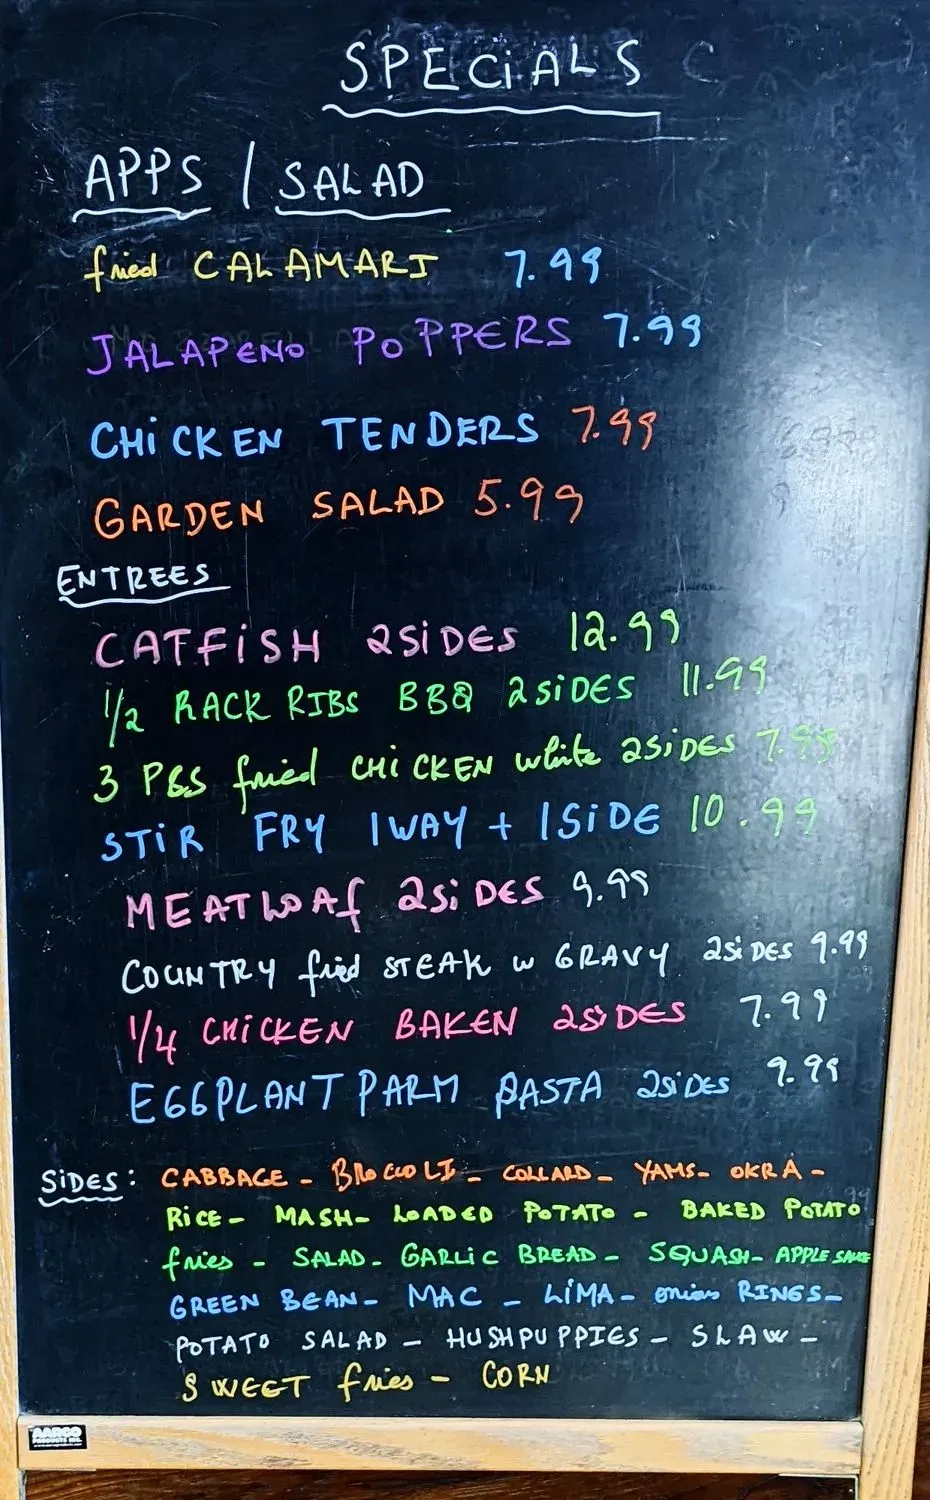 SPECiALS
APPS / SALAD
fried CALAMARI 7.99
JALAPENO POPPERS 7.99
CHiCKEN TENDERS 7.99
GARDEN SALAD 5.99
ENTREES
CATFiSH 2SiDES 12.99
1/2 RACK RIBS BBQ 2SiDES 11.99
3 PCS fried CHiCKEN white 2SiDES 7.99
STiR FRY 1WAY + 1SiDE 10.99
MEATLOAf 2SiDES 9.99
COUNTRY fried STEAK w GRAVY 2SiDES 9.99
1/4 CHiCKEN BAKEN 2SiDES 7.99
EGGPLANT PARM PASTA 2SiDES 9.99
SiDES: CABBAGE - BROCCOLI - COLLARD - YAMS - OKRA -
RiCE - MASH - LOADED POTATO - BAKED POTATO
fries - SALAD - GARLiC BREAD - SQUASH - APPLE SAUCE
GREEN BEAN - MAC - LiMA - onion RINGS -
POTATO SALAD - HUSHPUPPIES - SLAW -
SWEET fries - CORN
AARCO
PRODUCTS INC.